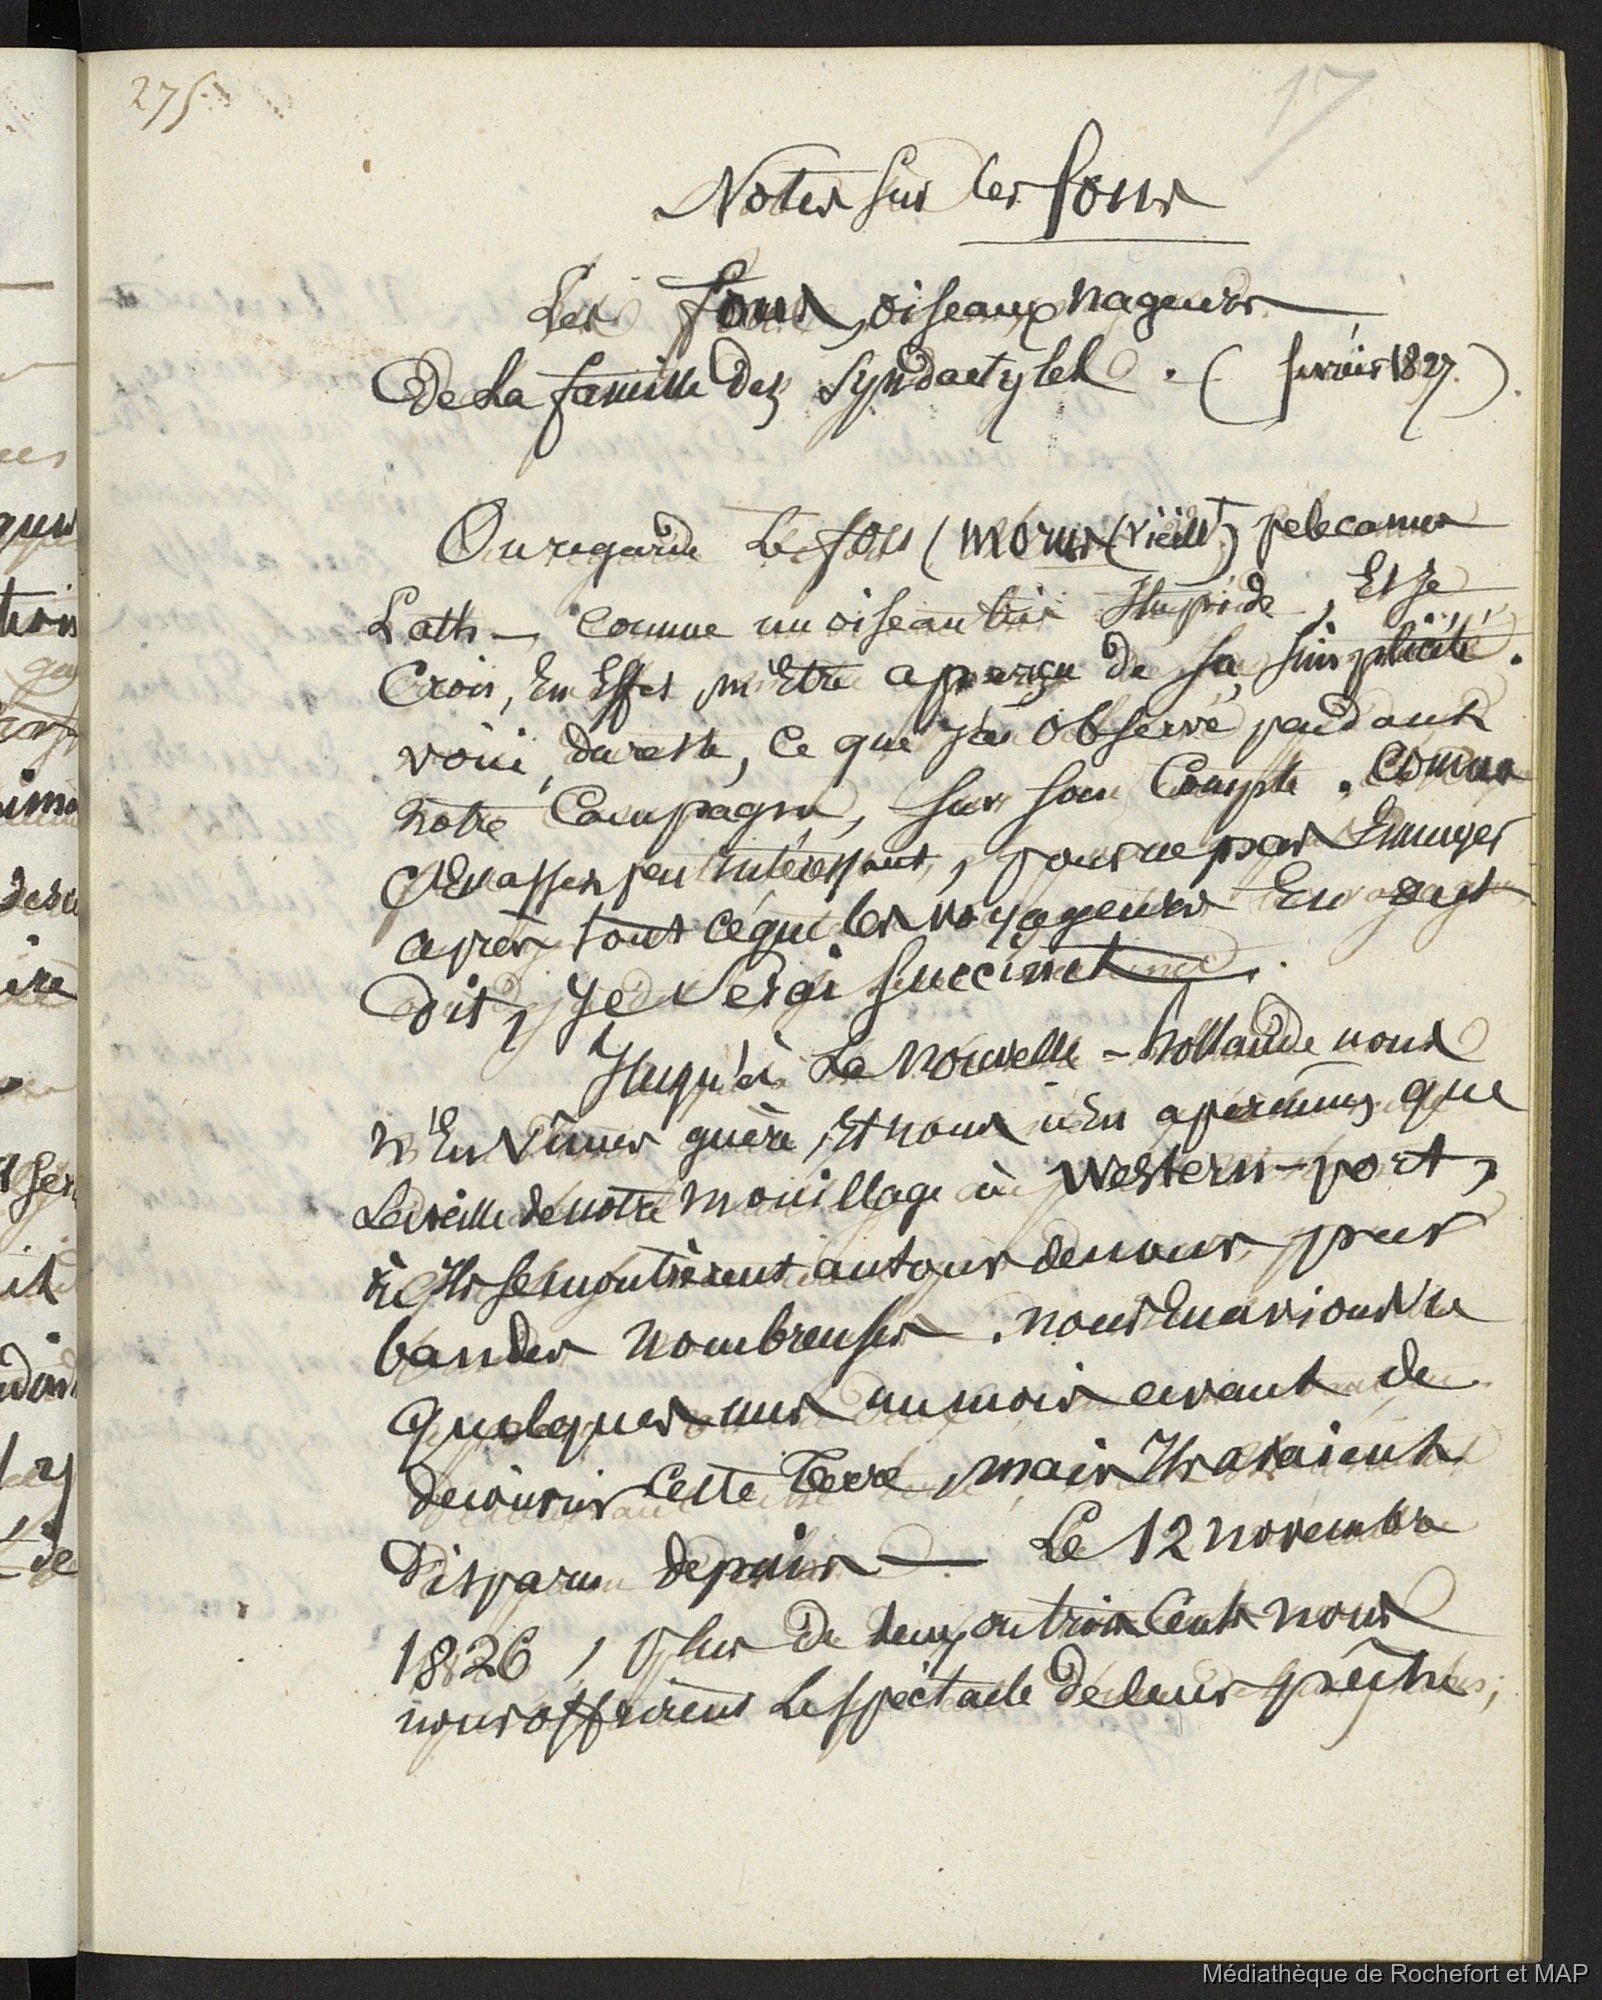 275.
17
Notes sur les fous
Les fous, oiseaux nageurs
De La famille Des Syndactyles. (février 1827).
On regarde Le fou (morus (vieillt) pelecanus
Lath —, comme un oiseau très stupide, Et je
Crois, En Effet, m'Etre aperçu de sa simplicité.
voici, du reste, ce que j'ai observé pendant
notre Campagne, sur son Compte. comme
C'Est assez peu intéressant, pour ne pas Ennuyer
après tout ce que les voyageurs En ont
dit, je serai succinct.
Jusqu'à La nouvelle-hollande nous
n'En vimes guère, Et nous n'En aperçumes que
La veille de notre mouillage au Western-port,
où Ils se montrèrent autour de nous par
bandes nombreuses. nous En avions vu
quelques uns un mois avant de
decouvrir Cette Terre, mais Ils avaient
Disparu depuis — Le 12 novembre
1826, plus de deux ou trois Cents nous
nous offrirent Le spectacle de leur pêche;
Médiathèque de Rochefort et MAP